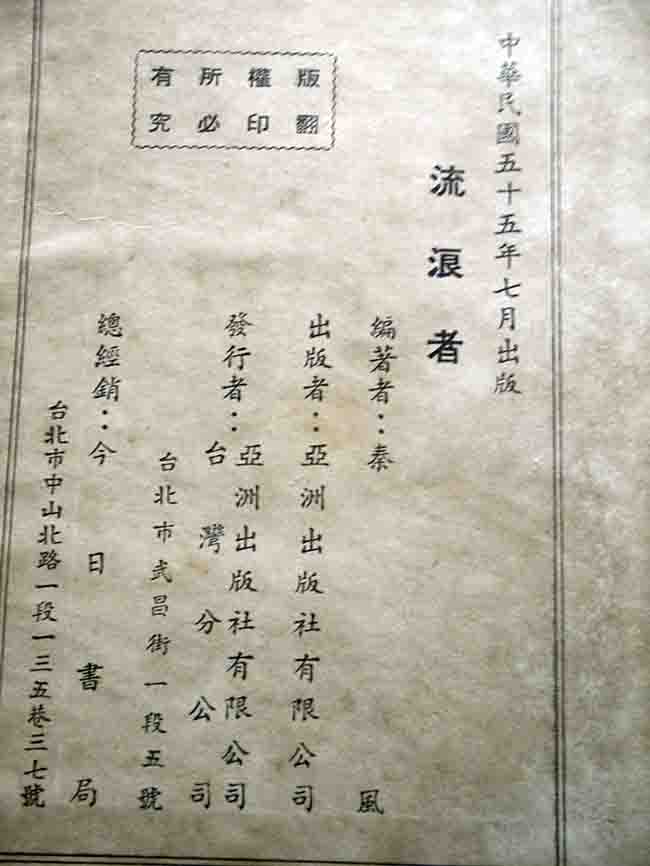 中華民國五十五年七月出版
流浪者
編著者：秦風
出版者：亞洲出版社有限公司
發行者：亞洲出版社有限公司
台灣分公司
台北市武昌街一段五號
總經銷：今日書局
台北市中山北路一段一三五巷三七號
版權所有
翻印必究